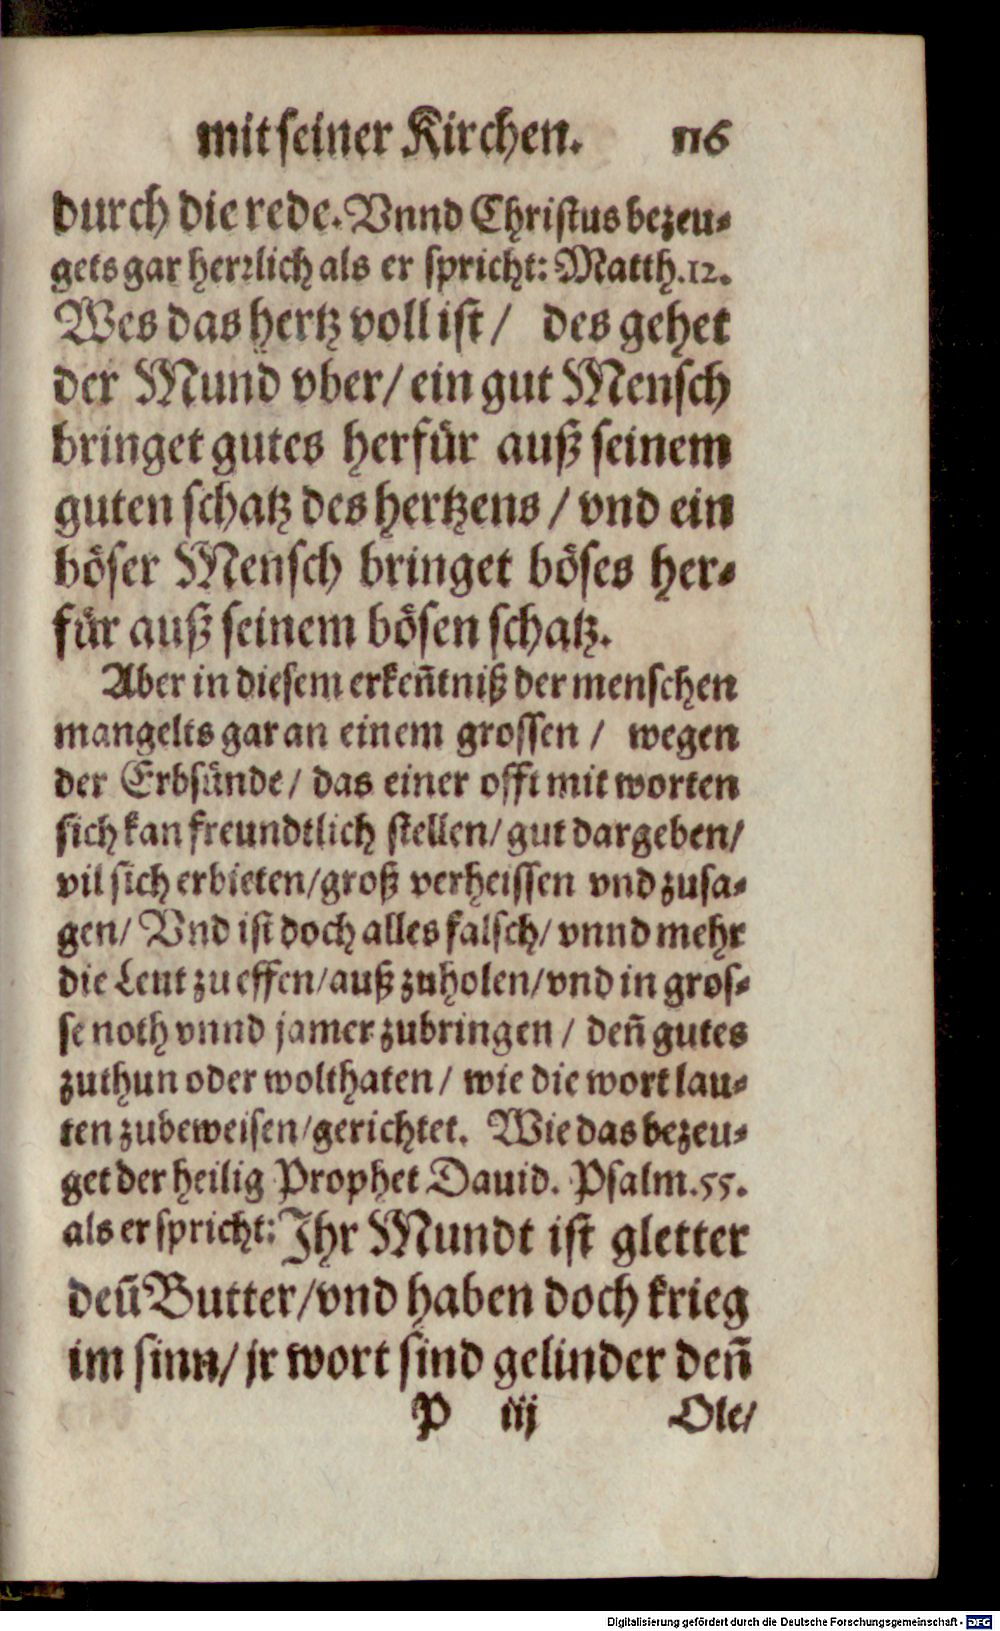 mit seiner Kirchen. 116
durch die rede. Vnnd Christus bezeu-
gets gar herrlich als er spricht: Matth. 12.
Wes das hertz voll ist / des gehet
der Mund vber / ein gut Mensch
bringet gutes herfür auß seinem
guten schatz des hertzens / vnd ein
böser Mensch bringet böses her-
für auß seinem bösen schatz.
Aber in diesem erkeñtniß der menschen
mangelts gar an einem grossen / wegen
der Erbsünde / das einer offt mit worten
sich kan freundtlich stellen / gut dargeben /
vil sich erbieten / groß verheissen vnd zusa-
gen / Vnd ist doch alles falsch / vnnd mehr
die Leut zu effen / auß zuholen / vnd in gros-
se noth vnnd jamer zubringen / deñ gutes
zuthun oder wolthaten / wie die wort lau-
ten zubeweisen / gerichtet. Wie das bezeu-
get der heilig Prophet Dauid. Psalm. 55.
als er spricht: Ihr Mundt ist gletter
deñ Butter / vnd haben doch krieg
im sinn / jr wort sind gelinder deñ
P iij Ole /
Digitalisierung gefördert durch die Deutsche Forschungsgemeinschaft - DFG